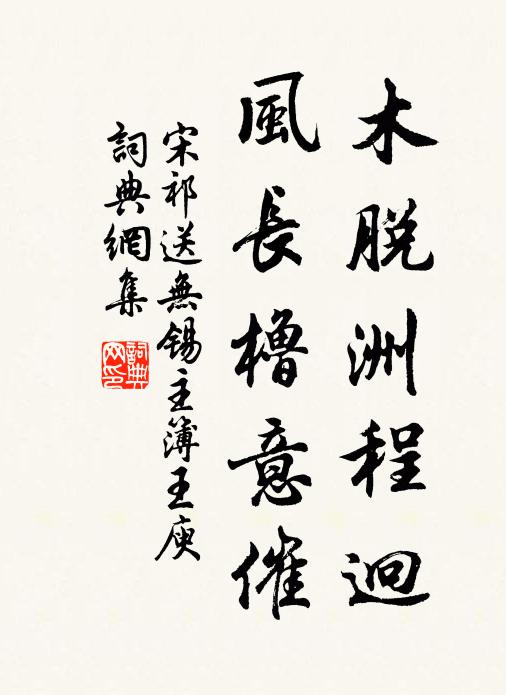 木脫洲程迥
風長櫓意催
宋祁送無錫主簿王庾
詞典網集
詞典网印